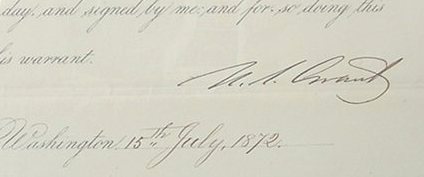 day, and signed by me; and for so doing this
his warrant.
U. S. Grant
Washington, 15th July, 1872.